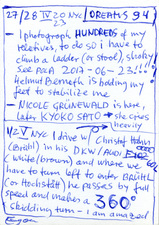 27/28 IV 20 NYC DREAMS 94
23
- I photograph HUNDREDS of my
relatives, to do so i have to
climb a ladder (or stool), shaky!
See P&A 2017-06-23!!!
Helmut Berneth is holding my
feet to stabilize me
- NICOLE GRÜNEWALD is here,
later KYOKO SATO → she cries
heavily
1/2 V NYC I drive w/ Christof Hohn
(Brühl) in his DKW/AUDI F102
(white/brown) and where we
have to turn left to enter BRÜHL
(or Horststätt) he passes by full
speed and makes a 360°
skidding turn - i am amazed